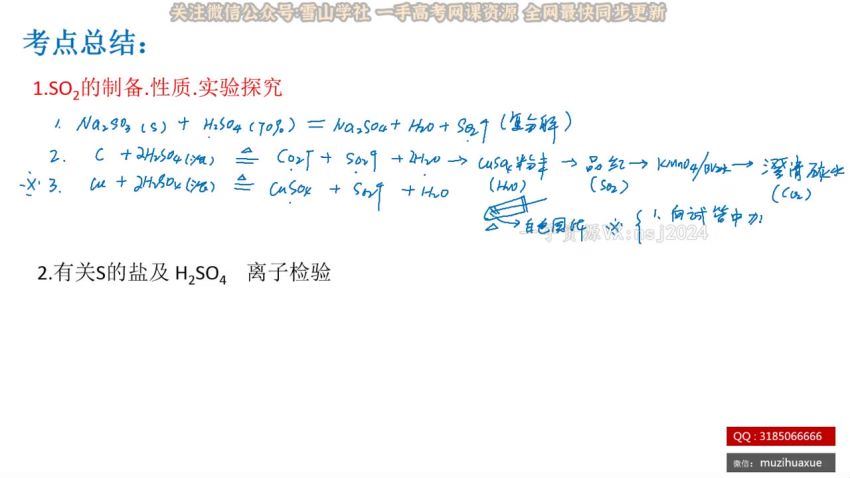 关注微信公众号:雪山学社 一手高考网课资源 全网最快同步更新
考点总结：
1.SO₂的制备.性质.实验探究
1. Na₂SO₃(s) + H₂SO₄(70%) = Na₂SO₄ + H₂O + SO₂↑ (复分解)
2. C + 2H₂SO₄(浓) ≜ CO₂↑ + SO₂↑ + 2H₂O → CuSO₄粉末 → 品红 → KMnO₄/Br₂水 → 澄清石灰水
(H₂O) (SO₂) (CO₂)
※3. Cu + 2H₂SO₄(浓) ≜ CuSO₄ + SO₂↑ + H₂O
△ → 白色固体 ※ { 1. 向试管中加
一手资源VX:nsj2024
2.有关S的盐及 H₂SO₄ 离子检验
QQ : 3185066666
微信： muzihuaxue